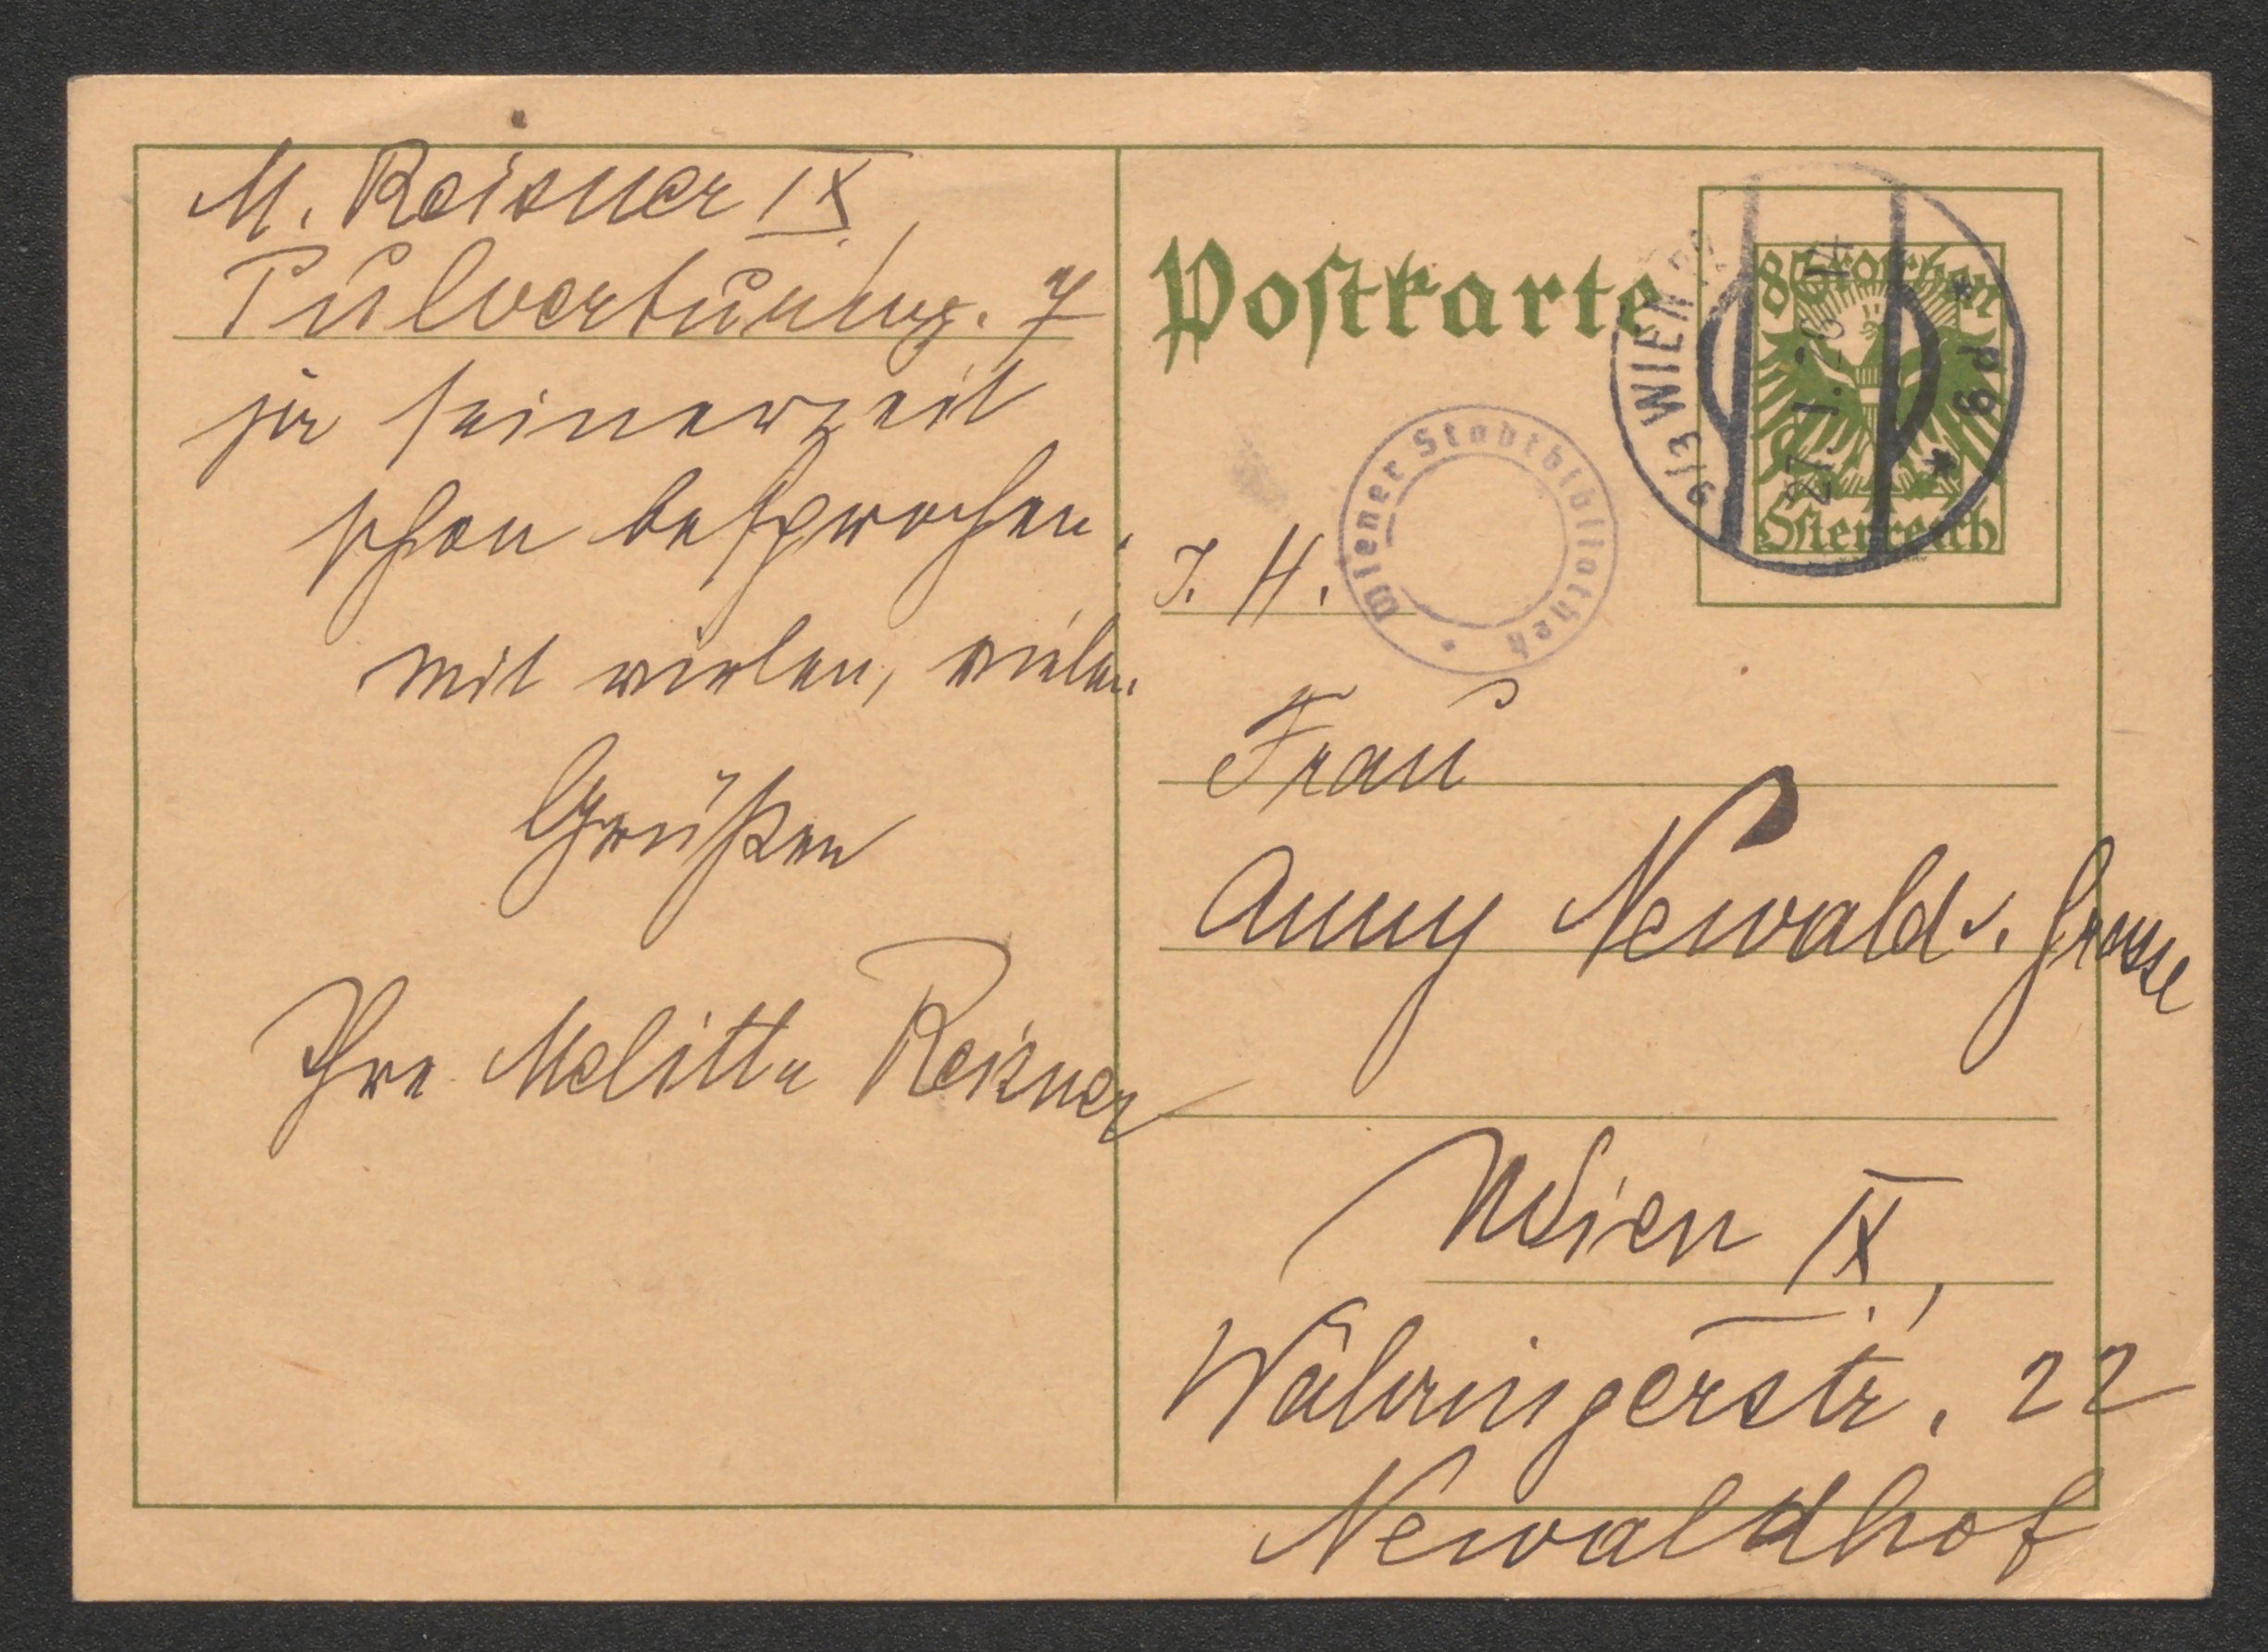 M. Reisner IX,
Pulverturmg. 7
ja seinerzeit
schon besprochen.
mit vielen, vielen
Grüßen
Ihre Melitta Reisner
Postkarte
8 Groschen
Österreich
9/3 WIEN
27. I.
* P9 *
Wiener Stadtbibliothek
I. H.
Frau
Anny Newald v. Grasse
Wien IX,
Währingerstr. 22
Newaldhof